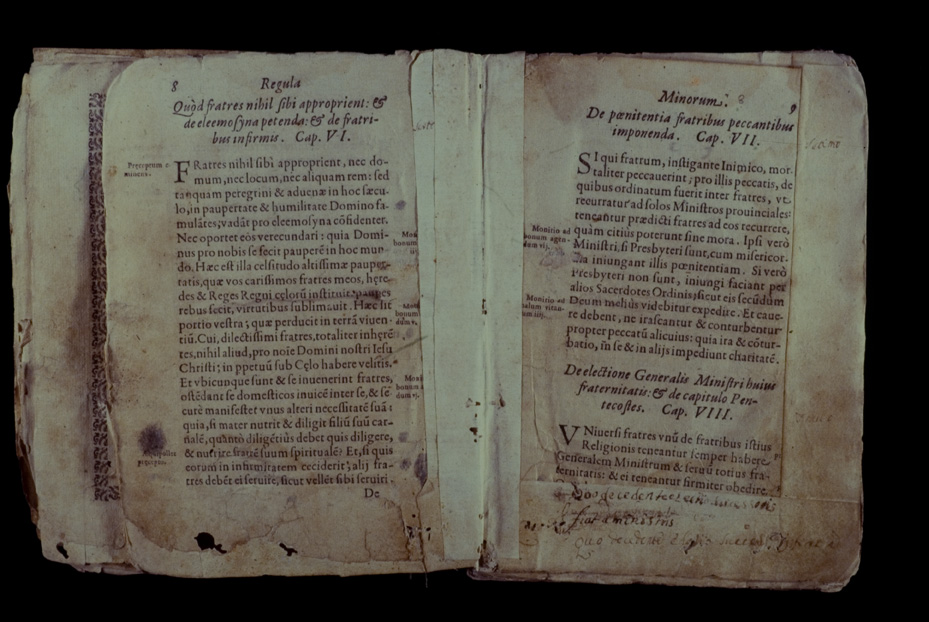 8 Regula
Quòd fratres nihil sibi approprient: &
de eleemosyna petenda: & de fratri-
bus infirmis. Cap. VI.
FRatres nihil sibi approprient, nec do-
mum, nec locum, nec aliquam rem: sed
tanquam peregrini & aduenæ in hoc sæcu-
lo, in paupertate & humilitate Domino fa-
mulātes, vadāt pro eleemosyna cōfidenter.
Nec oportet eos verecundari: quia Domi-
nus pro nobis se fecit pauperē in hoc mun-
do. Hæc est illa celsitudo altissimæ pauper-
tatis, quæ vos carissimos fratres meos, hęre-
des & Reges Regni cęlorū instituit, paupes
rebus fecit, virtutibus sublimauit. Hæc sit
portio vestra; quæ perducit in terrā viuen-
tiū. Cui, dilectissimi fratres, totaliter inhęrē
tes, nihil aliud, pro noīe Domini nostri Iesu
Christi; in ppetuū sub Cęlo habere velitis.
Et vbicunque sunt & se inuenerint fratres,
ostēdant se domesticos inuicē inter se, & se
curè manifestet vnus alteri necessitatē suā:
quia, si mater nutrit & diligit filiū suū car-
nalē, quantò diligētiùs debet quis diligere,
& nutrire fratrē suum spiritualē? Et, si quis
eorum in infirmitatem ceciderit; alij fra-
tres debēt ei seruire, sicut vellēt sibi seruiri.
De
Minorum. 9
De pœnitentia fratribus peccantibus
imponenda. Cap. VII.
SI qui fratrum, instigante Inimico, mor-
taliter peccauerint; pro illis peccatis, de
quibus ordinatum fuerit inter fratres, vt
recurratur ad solos Ministros prouinciales:
teneantur prædicti fratres ad eos recurrere,
quàm citiùs poterunt sine mora. Ipsi verò
Ministri, si Presbyteri sunt, cum misericor-
dia iniungant illis pœnitentiam. Si verò
Presbyteri non sunt, iniungi faciant per
alios Sacerdotes Ordinis, sicut eis secūdùm
Deum meliùs videbitur expedire. Et caue-
re debent, ne irascantur & conturbentur
propter peccatū alicuius: quia ira & cōtur-
batio, in se & in alijs impediunt charitatē.
De electione Generalis Ministri huius
fraternitatis: & de capitulo Pen-
tecostes. Cap. VIII.
VNiuersi fratres vnū de fratribus istius
Religionis teneantur semper habere
Generalem Ministrum & seruū totius fra-
ternitatis: & ei teneantur firmiter obedire.
Quo decedente
fiat a ministris
Quo decedente
Monitio ad
bonum agen-
dum
Monitio ad
malum vitan-